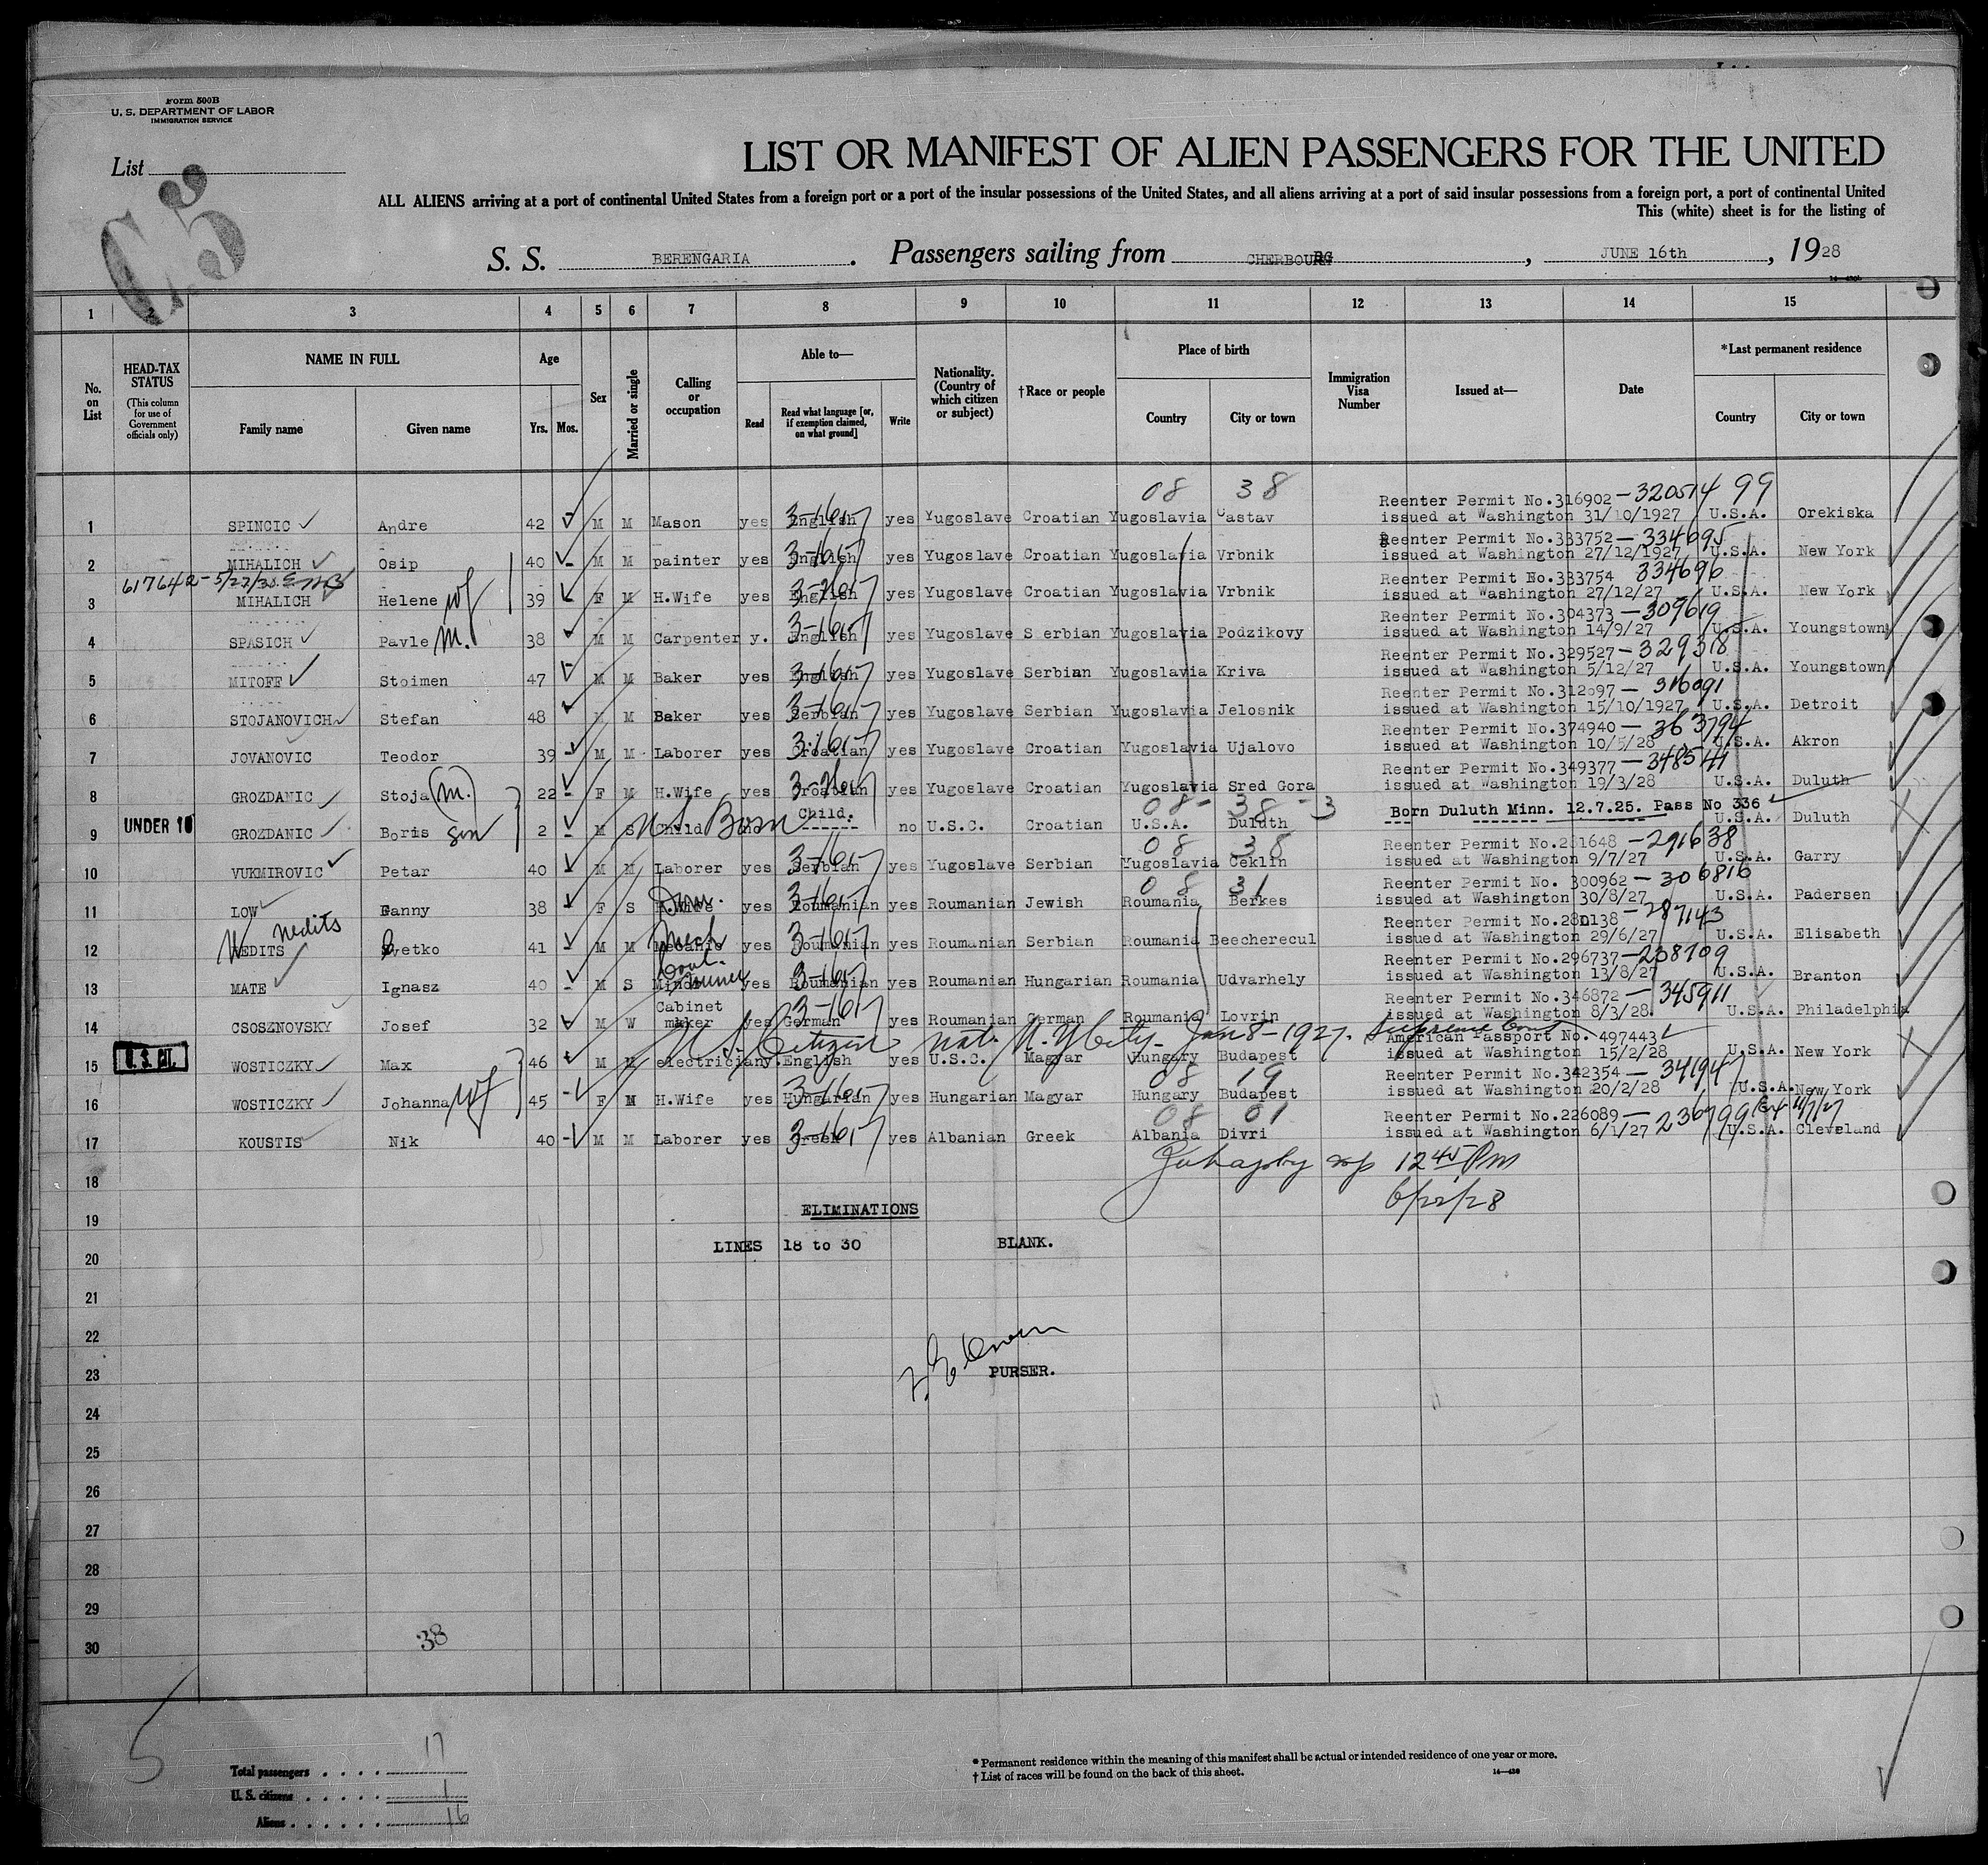 Form 500B
U. S. DEPARTMENT OF LABOR
IMMIGRATION SERVICE
List
C.5
LIST OR MANIFEST OF ALIEN PASSENGERS FOR THE UNITED
ALL ALIENS arriving at a port of continental United States from a foreign port or a port of the insular possessions of the United States, and all aliens arriving at a port of said insular possessions from a foreign port, a port of continental United
This (white) sheet is for the listing of
S. S. BERENGARIA. Passengers sailing from CHERBOURG, JUNE 16th, 1928
1 2 3 4 5 6 7 8 9 10 11 12 13 14 15
No. on List
HEAD-TAX STATUS
(This column for use of Government officials only)
NAME IN FULL
Family name Given name
Age
Yrs. Mos.
Sex
Married or single
Calling or occupation
Able to—
Read
Read what language [or, if exemption claimed, on what ground]
Write
Nationality. (Country of which citizen or subject)
†Race or people
Place of birth
Country City or town
Immigration Visa Number
Issued at—
Date
*Last permanent residence
Country City or town
08 38
Reenter Permit No.316902 - 320514 99
1 SPINCIC Andre 42 M M Mason yes English 3-1617 yes Yugoslave Croatian Yugoslavia Castav issued at Washington 31/10/1927 U.S.A. Orekiska
Reenter Permit No.333752 - 334695
2 MIHALICH Osip 40 M M painter yes English 3-1617 yes Yugoslave Croatian Yugoslavia Vrbnik issued at Washington 27/12/1927 U.S.A. New York
617642 - 5/27/38
Reenter Permit No.333754 334696
3 MIHALICH Helene wf 39 F M H.Wife yes English yes Yugoslave Croatian Yugoslavia Vrbnik issued at Washington 27/12/27 U.S.A. New York
Reenter Permit No.304373 - 309619
4 SPASICH Pavle m. 38 M M Carpenter y. English 3-1617 yes Yugoslave Serbian Yugoslavia Podzikovy issued at Washington 14/9/27 U.S.A. Youngstown
Reenter Permit No.329527 - 329318
5 MITOFF Stoimen 47 M M Baker yes English 3-1617 yes Yugoslave Serbian Yugoslavia Kriva issued at Washington 5/12/27 U.S.A. Youngstown
Reenter Permit No.312097 - 316091
6 STOJANOVICH Stefan 48 M M Baker yes Serbian 3-1617 yes Yugoslave Serbian Yugoslavia Jelosnik issued at Washington 15/10/1927 U.S.A. Detroit
Reenter Permit No.374940 - 363794
7 JOVANOVIC Teodor 39 M M Laborer yes Croatian 3-1617 yes Yugoslave Croatian Yugoslavia Ujalovo issued at Washington 10/5/28 U.S.A. Akron
Reenter Permit No.349377 - 348541
8 GROZDANIC Stoja (m.) 22 F M H.Wife yes Croatian yes Yugoslave Croatian Yugoslavia Sred Gora issued at Washington 19/3/28 U.S.A. Duluth
08 - 38 - 3
Born Duluth Minn. 12.7.25. Pass No 336
UNDER 16
9 GROZDANIC Boris son 2 M S Child US Born no Child. no U.S.C. Croatian U.S.A. Duluth U.S.A. Duluth
08 38
10 VUKMIROVIC Petar 40 M M Laborer yes Serbian 3-1617 yes Yugoslave Serbian Yugoslavia Ceklin issued at Washington 9/7/27 U.S.A. Garry
- 291638
08 31
Reenter Permit No. 300962 - 306816
11 LOW Fanny 38 F S Dom. yes Roumanian 3-1617 yes Roumanian Jewish Roumania Berkes issued at Washington 30/8/27 U.S.A. Padersen
Nedits
- 287143
12 NEDITS vetko 41 M M Mech yes Roumanian 3-1617 yes Roumanian Serbian Roumania Beecherecul issued at Washington 29/6/27 U.S.A. Elisabeth
Reenter Permit No.296737 - 238709
13 MATE Ignasz 40 M S Coal Miner yes Roumanian 3-1617 yes Roumanian Hungarian Roumania Udvarhely issued at Washington 13/8/27 U.S.A. Branton
Reenter Permit No.346872 - 345911
14 CSOSZNOVSKY Josef 32 M W Cabinet maker yes German 3-1617 yes Roumanian German Roumania Lovrin issued at Washington 8/3/28 U.S.A. Philadelphia
U.S. Citizen nat. N.Y City - Jan 8 - 1927. Supreme Court
American Passport No. 497443
U. S. CIT.
15 WOSTICZKY Max 46 M M electrician y. English yes U.S.C. Magyar Hungary Budapest issued at Washington 15/2/28 U.S.A. New York
08 19
Reenter Permit No.342354 - 341947
16 WOSTICZKY Johanna wf 45 F M H.Wife yes Hungarian 3-1617 yes Hungarian Magyar Hungary Budapest issued at Washington 20/2/28 U.S.A. New York
08 01
Reenter Permit No.226089 - 236799
17 KOUSTIS Nik 40 M M Laborer yes Greek 3-1617 yes Albanian Greek Albania Divri issued at Washington 6/1/27 U.S.A. Cleveland
18 12 45 Pm
19 ELIMINATIONS 6/22/28
20 LINES 18 to 30 BLANK.
21
22
23 PURSER.
24
25
26
27
28
29
30
38
5
Total passengers . . . . 17
U. S. citizens . . . . . 1
Aliens . . . . . . 16
* Permanent residence within the meaning of this manifest shall be actual or intended residence of one year or more.
† List of races will be found on the back of this sheet.